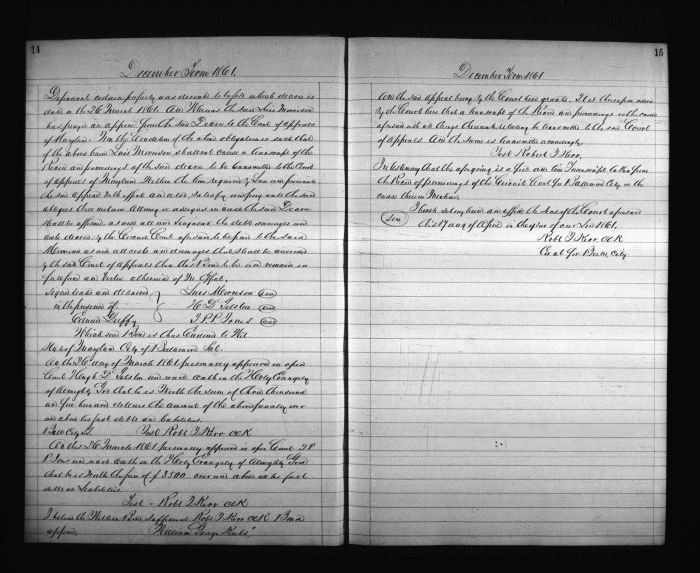 14
December Term 1861.
Defendants certain property was decreed to be sold which decree is
date on the 26 March 1861. And Whereas the said Luis Morrison
has prayed an appeal from the said Decree to the Court of appeals
of Maryland. Now the Condition of the above obligation is such that
if the above bound Luis Morrison shall cause a transcript of the
Record and proceedings of the said decree to be transmitted to the Court
of appeals of Maryland Within the time required by Law and prosecute
the said appeal with effect and also satisfy and pay unto the said
his Attorney or assigns in case the said Decree
shall be affirmed as well as the debt damages and
costs decreed by the Circuit Court aforesaid to be paid to the said
as also all costs and damages that shall be awarded
by the said Court of appeals then this Bond to be and remain in
full force and virtue otherwise of no effect.
Signed sealed and delivered Luis Morrison Seal
in the presence of H D Jelston Seal
Edward Duffy T. P. P. Jones Seal
Which said Bond is thus Endorsed to Wit
State of Maryland City of Baltimore Sct.
On this 26 day of March 1861 personally appeared in open
Court Hugh D Jelston and made oath on the Holy Evangely
of Almighty God that he is Worth the sum of three thousand
and five hundred dollars the amount of the above penalty over
and above his just debts and liabilities.
Balt City Sct. Test Robt J Kerr Clk
On this 26 March 1861 personally appeared in open Court T P
P Jones and made oath on the Holy Evangely of Almighty God
that he is Worth the sum of $ 3500 over and above all his just
debts and Liabilities.
Test - Robt J Kerr Clk
I believe the Within Bond sufficient Robt J Kerr Clk Bond
approved, "William George Krebs"
15
December Term 1861
And the said appeal being by the Court here granted. It is thereupon ordered
by the Court here that a transcript of the Record and proceedings in the cause
aforesaid with all things thereunto relating be transmitted to the said Court
of appeals And the same is transmitted accordingly.
Test Robert J Kerr.
In testimony that the aforegoing is a true and full Transcript taken from
the Record of proceedings of the Circuit Court for Baltimore City, in the
cause therein Mentioned.
Seal I hereto set my hand and affix the seal of the Court aforesaid
this 17 day of April in the year of our Lord 1861.
Robt J Kerr Clk
Cir Ct for Balt. City